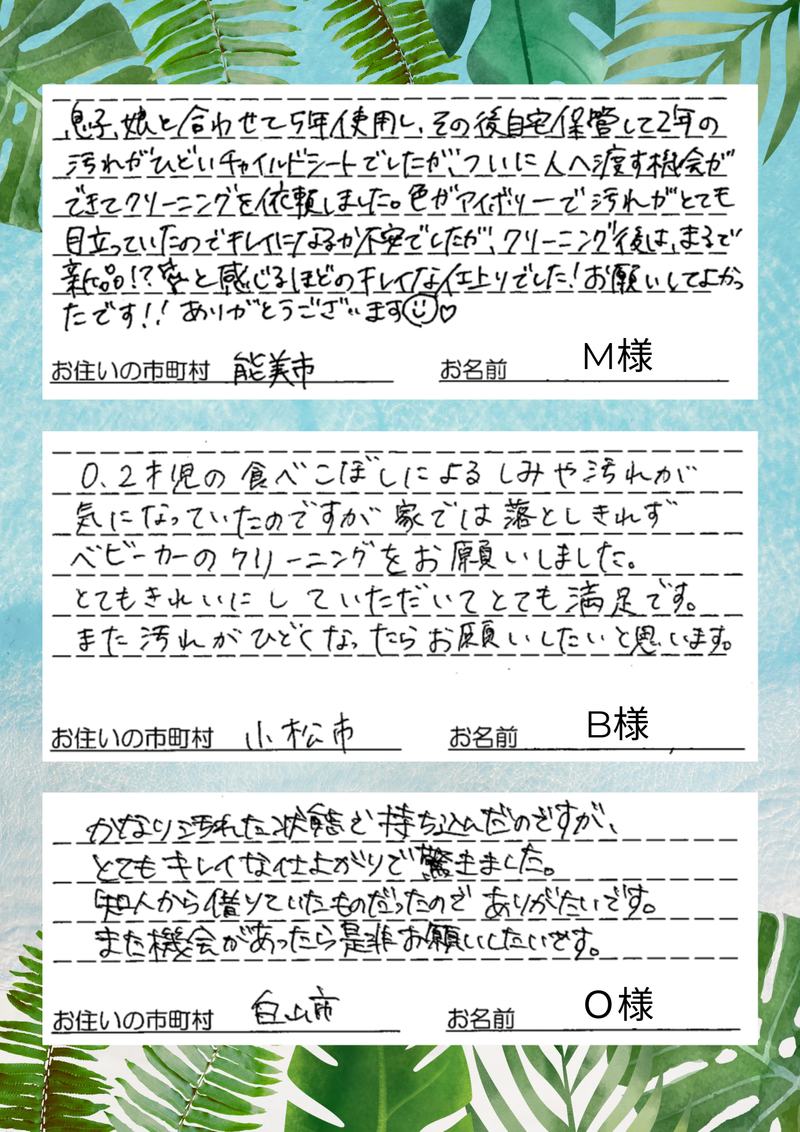 息子、娘と合わせて5年使用し、その後自宅保管して2年の
汚れがひどいチャイルドシートでしたが、ついに人へ渡す機会が
できてクリーニングを依頼しました。色がアイボリーで汚れがとても
目立っていたのでキレイになるか不安でしたが、クリーニング後は、まるで
新品!?と感じるほどのキレイな仕上りでした!お願いしてよかっ
たです!!ありがとうございます☺♡
お住いの市町村 能美市 お名前 M様
0.2才児の食べこぼしによるしみや汚れが
気になっていたのですが家では落としきれず
ベビーカーのクリーニングをお願いしました。
とてもきれいにしていただいてとても満足です。
また汚れがひどくなったらお願いしたいと思います。
お住いの市町村 小松市 お名前 B様
かなり汚れた状態で持ち込んだのですが、
とてもキレイな仕上がりで驚きました。
知人から借りていたものだったのでありがたいです。
また機会があったら是非お願いしたいです。
お住いの市町村 白山市 お名前 O様